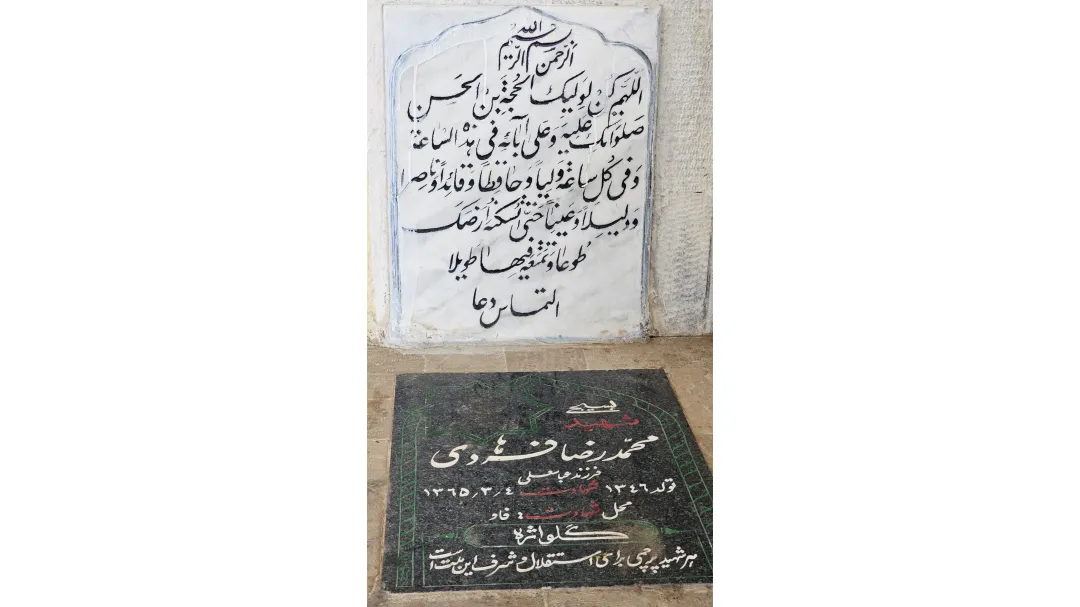 بسم الله
الرحمن الرحیم
اللهم کن لولیک الحجة بن الحسن
صلواتک علیه وعلی آبائه فی هذه الساعة
وفی کل ساعة ولیاً وحافظاً وقائداً وناصرا
ودلیلاً وعیناً حتی تسکنه ارضک
طوعا وتمتعه فیها طویلا
التماس دعا
بسیجی
شهید
محمد رضا فرهودی
فرزند عباسعلی
تولد ۱۳٤٦ شهادت ١٣٦٥٫٣٫٤
محل شهادت: فاو
گلواژه
هر شهید پرچمی برای استقلال و شرف این ملت است